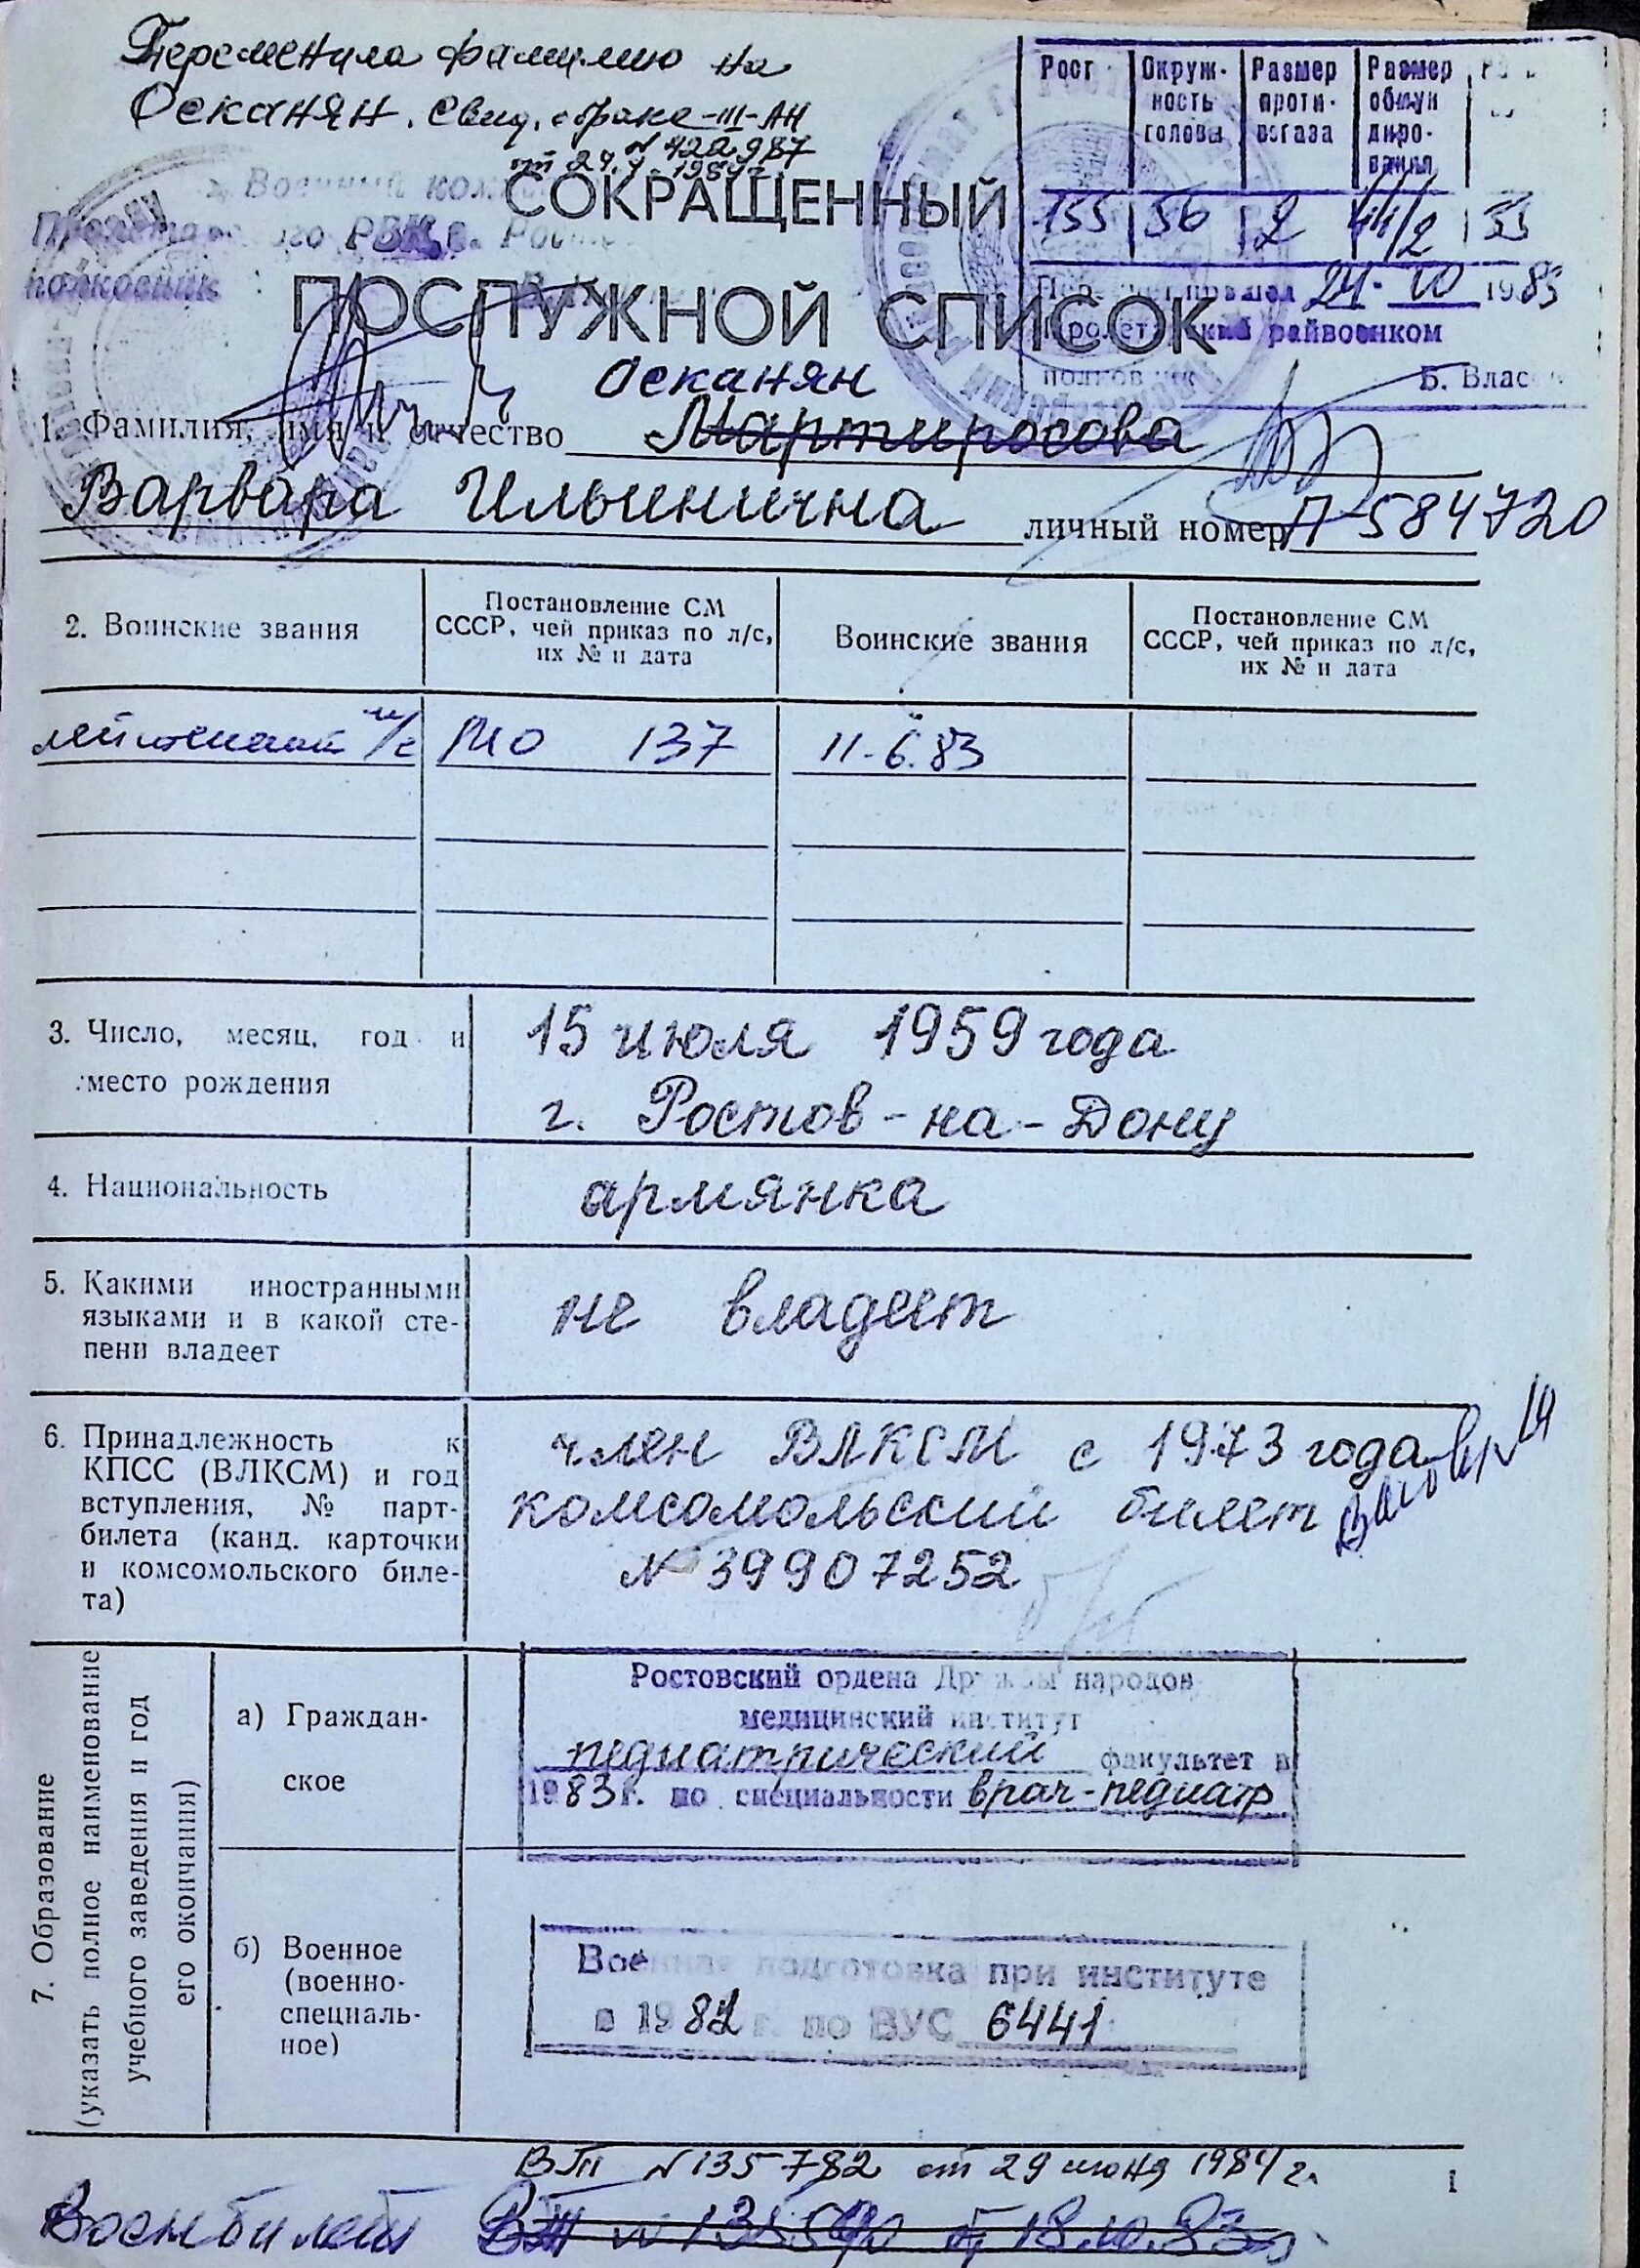 Переменила фамилию на
Осканян. Свид. о браке III-АН
№ 422987
от 24.
СОКРАЩЕННЫЙ
ПОСЛУЖНОЙ СПИСОК
Рост
Окруж-
ность
головы
Размер
проти-
вогаза
Размер
обмун
диро-
вания
155 56 2 44/2 55
24. 10 1983
райвоенком
Б. Влас
Военный ком
РВК г. Росто
полковник
Осканян
1. Фамилия, имя и отчество Мартиросова
Варвара Ильинична личный номер П-584720
2. Воинские звания
Постановление СМ
СССР, чей приказ по л/с,
их № и дата
Воинские звания
Постановление СМ
СССР, чей приказ по л/с,
их № и дата
лейтенант м/с МО 137 11.6.83
3. Число, месяц, год и
место рождения
15 июля 1959 года
г. Ростов-на-Дону
4. Национальность
армянка
5. Какими иностранными
языками и в какой сте-
пени владеет
не владеет
6. Принадлежность к
КПСС (ВЛКСМ) и год
вступления, № парт-
билета (канд. карточки
и комсомольского биле-
та)
член ВЛКСМ с 1973 года
комсомольский билет
№ 39907252
7. Образование
(указать полное наименование
учебного заведения и год
его окончания)
а) Граждан-
ское
Ростовский ордена Дружбы народов
медицинский институт
педиатрический факультет в
1983 г. по специальности врач-педиатр
б) Военное
(военно-
специаль-
ное)
Военная подготовка при институте
в 1982 г. по ВУС 6441
ВП №135782 от 29 июня 1984 г.
1
Военбилет